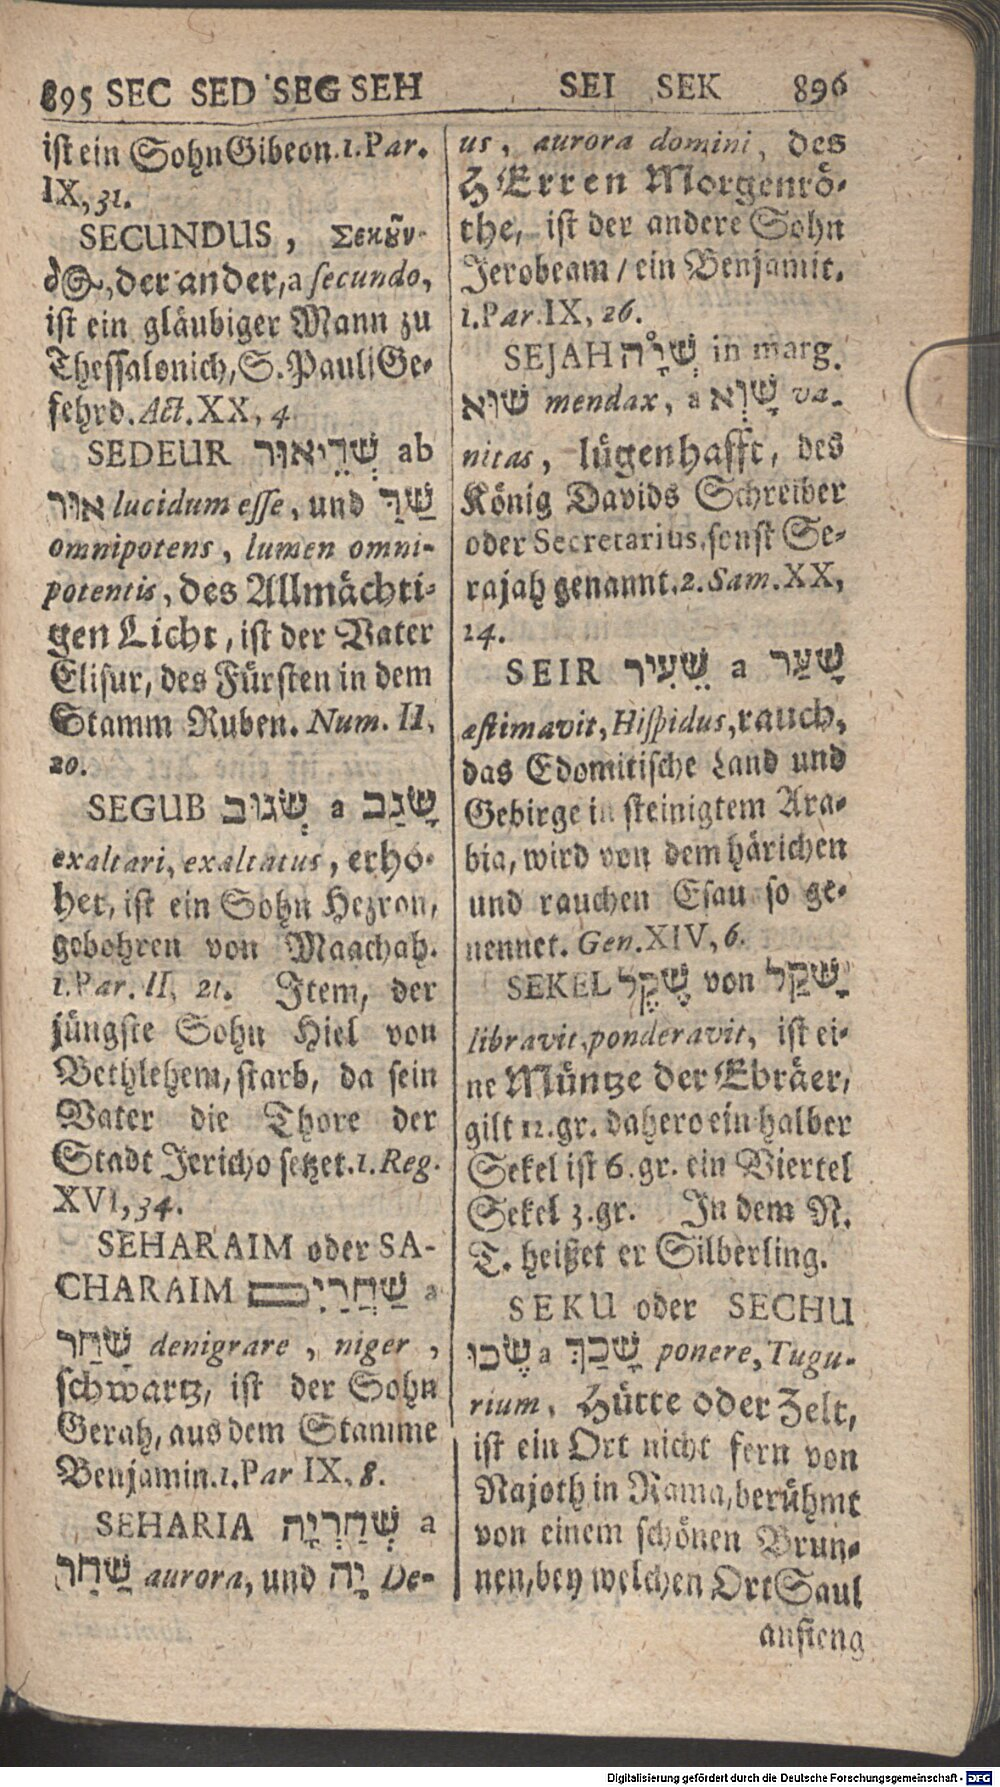 895 SEC SED SEG SEH
ist ein Sohn Gibeon. 1. Par.
IX, 31.
SECUNDUS, Σεκȣ͂ν-
δ⊙, der ander, a secundo,
ist ein gläubiger Mann zu
Thessalonich, S. Pauli Ge-
fehrd. Act. XX, 4
SEDEUR שְׁדֵיאוּר ab
אוּר lucidum esse, und שַׁדַּי
omnipotens, lumen omni-
potentis, des Allmächti-
gen Licht, ist der Vater
Elisur, des Fürsten in dem
Stamm Ruben. Num. II,
20.
SEGUB שְׂגוּב a שָׂגַב
exaltari, exaltatus, erhö-
het, ist ein Sohn Hezron,
gebohren von Maachah.
1. Par. II, 21. Item, der
jüngste Sohn Hiel von
Bethlehem, starb, da sein
Vater die Thore der
Stadt Jericho setzet. 1. Reg.
XVI, 34.
SEHARAIM oder SA-
CHARAIM שַׁחֲרַיִם a
שָׁחַר denigrare, niger,
schwartz, ist der Sohn
Gerah, aus dem Stamme
Benjamin. 1. Par IX, 8.
SEHARIA שְׁחַרְיָה a
שַׁחַר aurora, und יָהּ De-
SEI SEK 896
us, aurora domini, des
HErren Morgenrö-
the, ist der andere Sohn
Jerobeam / ein Benjamit.
1. Par. IX, 26.
SEJAH שְׁיָה in marg.
שׁוּא mendax, a שָׁוְא va-
nitas, lügenhafft, des
König Davids Schreiber
oder Secretarius, sonst Se-
rajah genannt. 2. Sam. XX,
24.
SEIR שֵׂעִיר a שָׁעַר
æstimavit, Hispidus, rauch,
das Edomitische Land und
Gebirge in steinigtem Ara-
bia, wird von dem härichen
und rauchen Esau so ge-
nennet. Gen. XIV, 6.
SEKEL שֶׁקֶל von שָׁקַל
libravit, ponderavit, ist ei-
ne Müntze der Ebräer,
gilt 12. gr. dahero ein halber
Sekel ist 6. gr. ein Viertel
Sekel 3. gr. In dem N.
T. heißet er Silberling.
SEKU oder SECHU
שֶׂכוּ a שָׂכַךְ ponere, Tugu-
rium, Hütte oder Zelt,
ist ein Ort nicht fern von
Najoth in Rama, berühmt
von einem schönen Brun-
nen, bey welchen Ort Saul
anfieng
Digitalisierung gefördert durch die Deutsche Forschungsgemeinschaft - DFG